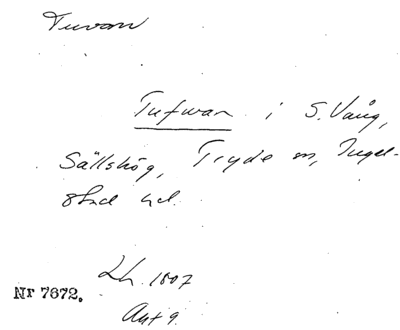 Tuvan
Tufwan i S. Vång,
Sällshög, Tryde sn, Ingel-
stad hd.
Lh. 1807
Nr 7672.
Akt 9.